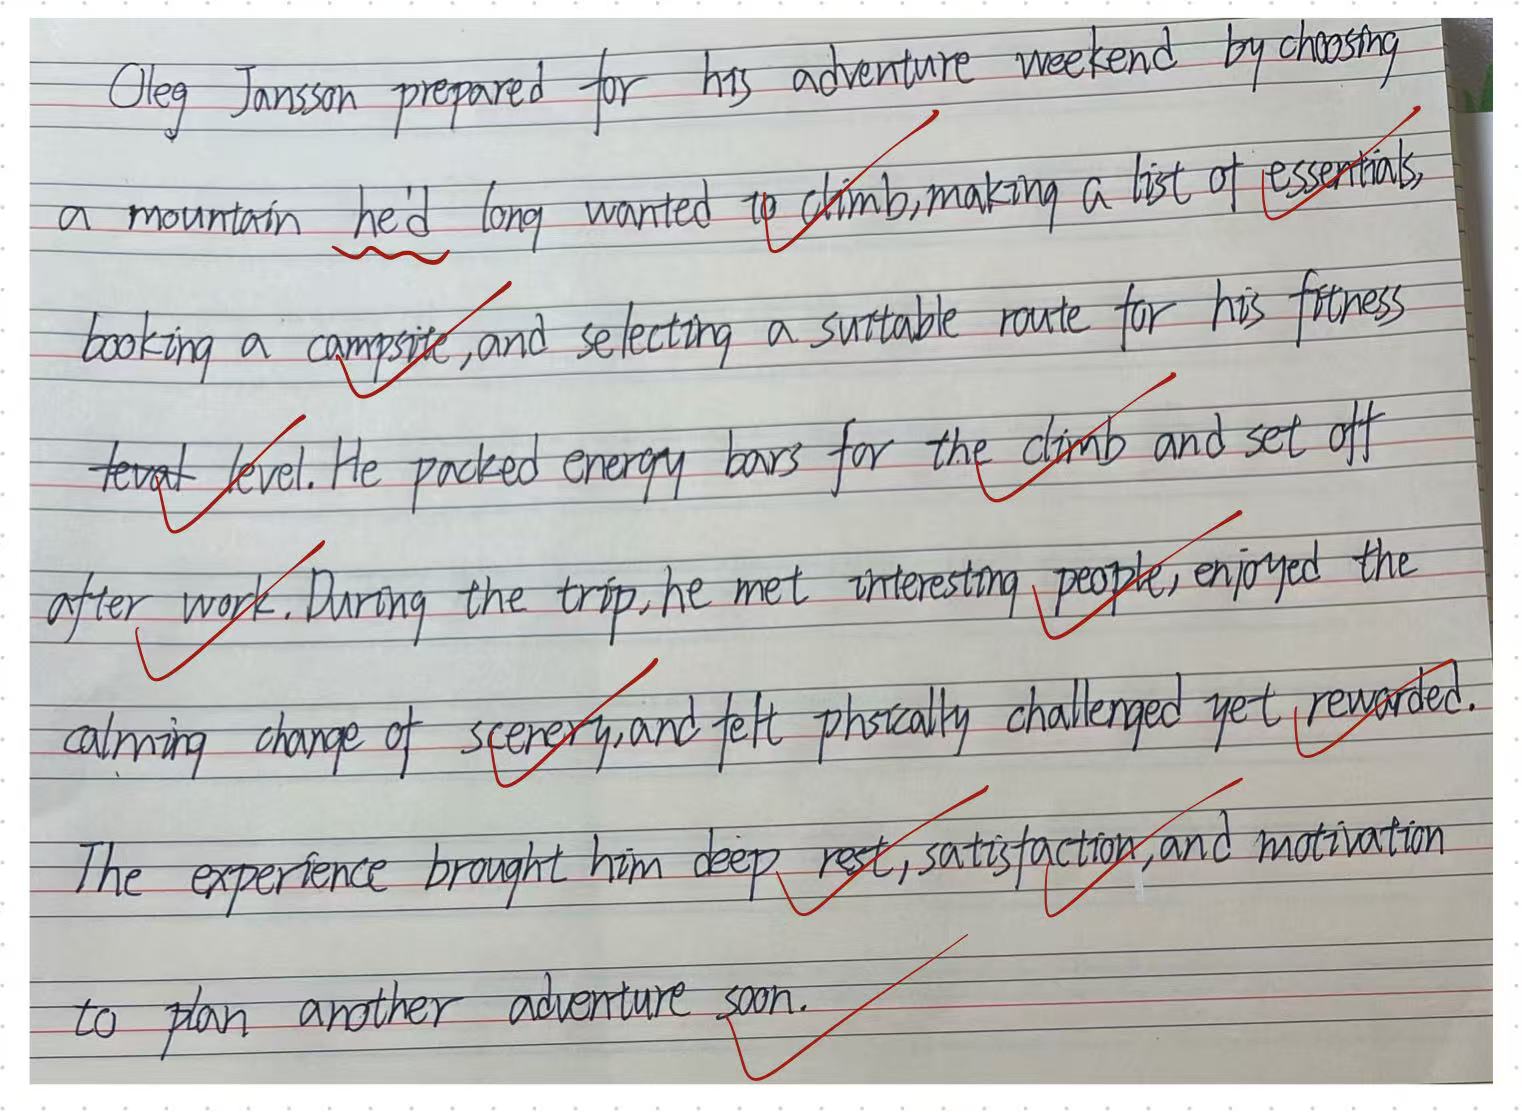 Oleg Jansson prepared for his adventure weekend by choosing
a mountain he'd long wanted to climb, making a list of essentials,
booking a campsite, and selecting a suitable route for his fitness
level. He packed energy bars for the climb and set off
after work. During the trip, he met interesting people, enjoyed the
calming change of scenery, and felt phsically challenged yet rewarded.
The experience brought him deep rest, satisfaction, and motivation
to plan another adventure soon.